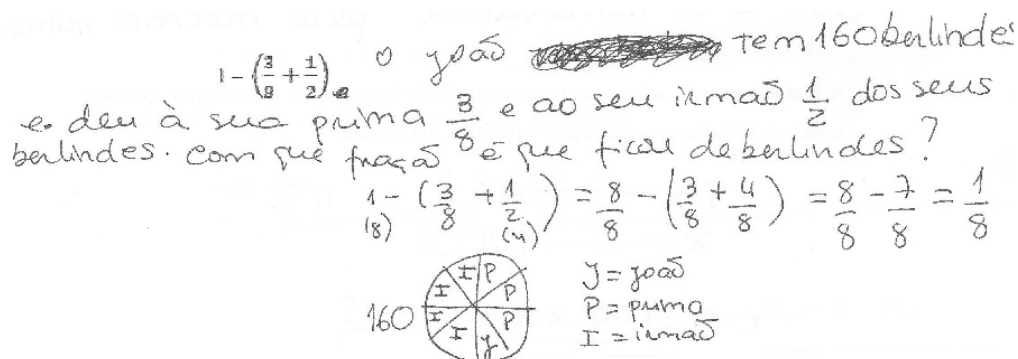 1 - (3/8 + 1/2). O João tem 160 berlindes
e deu à sua prima 3/8 e ao seu irmão 1/2 dos seus
berlindes. Com que fração é que ficou de berlindes?
1 - (3/8 + 1/2) = 8/8 - (3/8 + 4/8) = 8/8 - 7/8 = 1/8
(8) (4)
160
I P
I P
I P
I J
J = João
P = prima
I = irmão